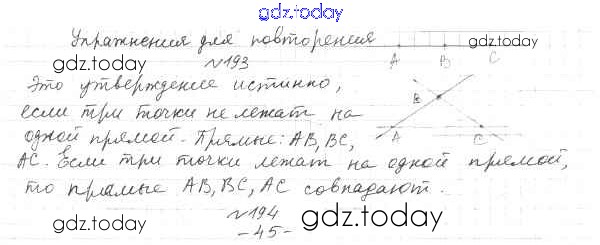 gdz.today
Упражнения для повторения gdz.today
A B C
№193
gdz.today
Это утверждение истинно,
если три точки не лежат на
одной прямой. Прямые: AB, BC,
AC. Если три точки лежат на одной прямой,
то прямые AB, BC, AC совпадают.
B
A C
gdz.today
№194
gdz.today
-45-